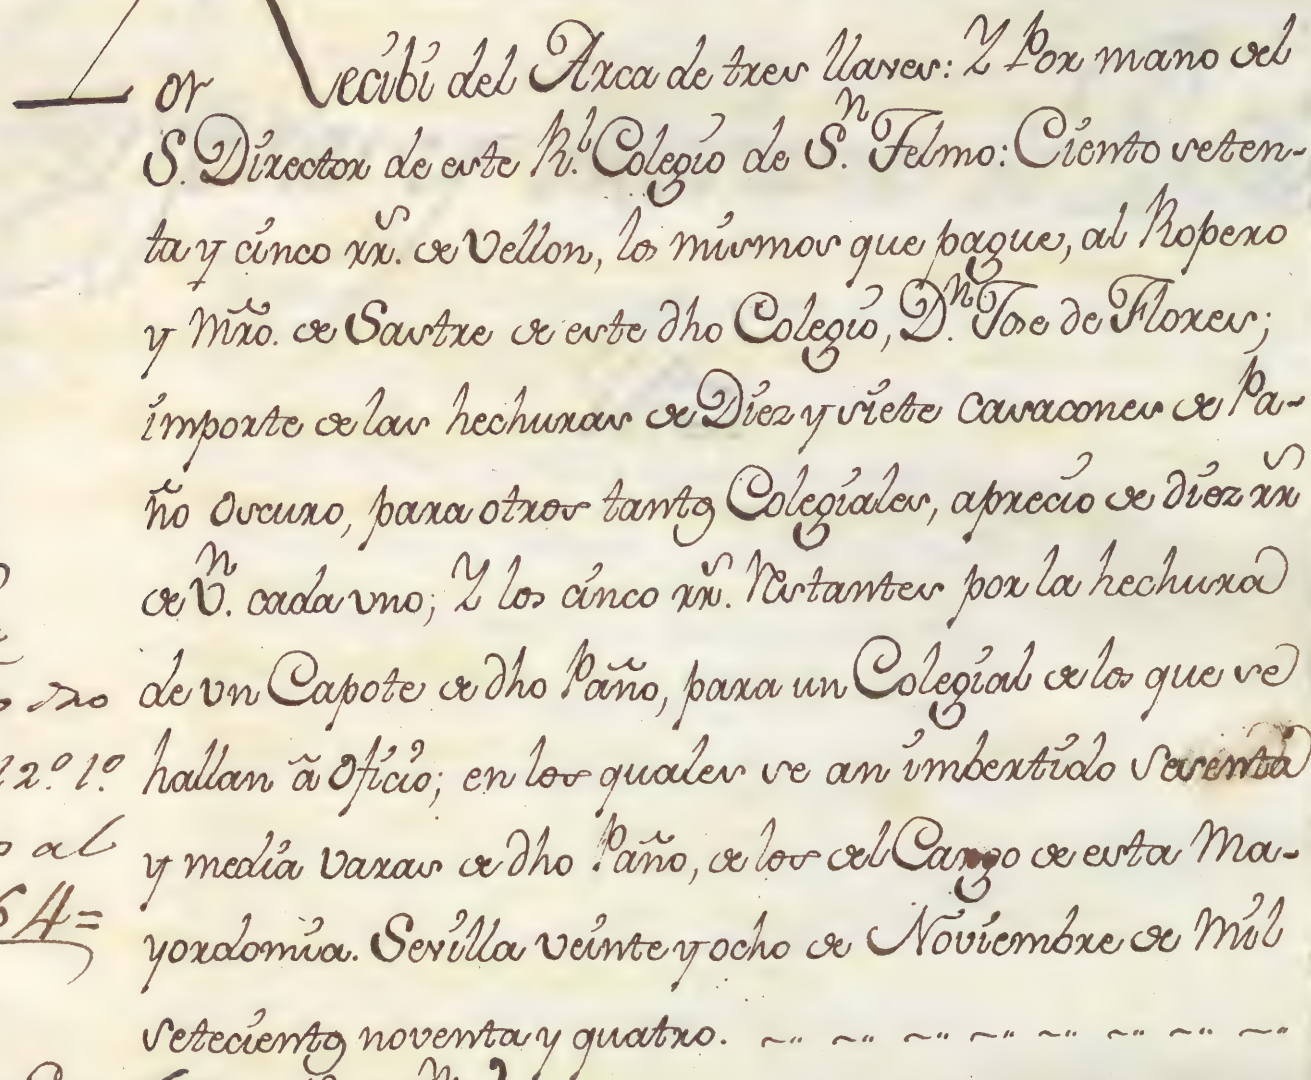 or Recibi del Arca de tres llaves: Y Por mano del
S. Director de este Rl. Colegio de Sn. Telmo: Ciento seten-
ta y cinco rrs. de Vellon, los mismos que pague, al Ropero
y Mrõ. de Sastre de este dho Colegio, Dn. Jose de Flores;
importe de las hechuras de Diez y siete Casacones de Pa-
ño Oscuro, para otros tantos Colegiales, aprecio de diez rrs
de Vn. cada vno; Y los cinco rrs. Restantes por la hechura
de vn Capote de dho Paño, para un Colegial de los que se
dro hallan ã Oficio; en los quales se an imbertido Sesenta
12º. 1º. y media varas de dho Paño, de los del Cargo de esta Ma-
al yordomia. Sevilla veinte y ocho de Noviembre de Mil
64= setecientos noventa y quatro.